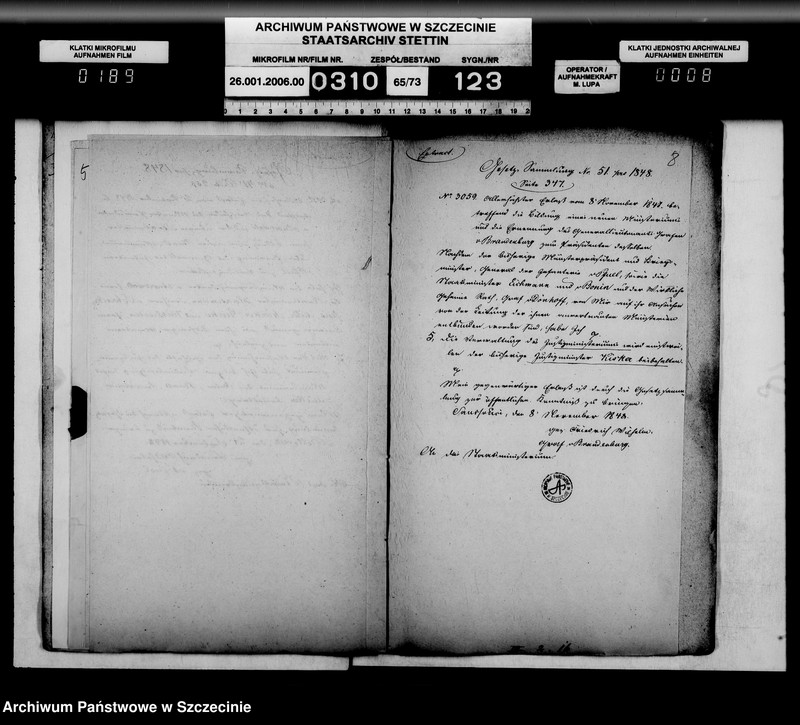 ARCHIWUM PAŃSTWOWE W SZCZECINIE
STAATSARCHIV STETTIN
KLATKI MIKROFILMU
AUFNAHMEN FILM
0189
MIKROFILM NR/FILM NR. ZESPÓŁ/BESTAND SYGN./NR
26.001.2006.00 0310 65/73 123
OPERATOR /
AUFNAHMEKRAFT
M. LUPA
KLATKI JEDNOSTKI ARCHIWALNEJ
AUFNAHMEN EINHEITEN
0008
0 1 2 3 4 5 6 7 8 9 10 11 12 13 14 15 16 17 18 19 20
5
8
Gesetz Sammlung No 51 pro 1848.
Seite 347.
No 3059. Allerhöchster Erlaß vom 8 November 1848. be-
treffend die Bildung eines neuen Ministeriums
und die Ernennung des Generallieutenants Grafen
v Brandenburg zum Präsidenten desselben
Nachdem der bisherige Ministerpräsident und Kriegs-
minister, General der Infanterie v Pfuel, sowie die
Staatsminister Eichmann und v Bonin und der Wirkliche
Geheime Rath, Graf v Dönhoff, von Mir auf ihr Ansuchen
von der Leitung der ihnen anvertrauten Ministerien
entbunden worden sind, habe Ich
5, die Verwaltung des Justizministeriums wird einstwei-
len der bisherige Justizminister Kisker beibehalten.
Mein gegenwärtiger Erlaß ist durch die Gesetzsamm-
lung zur öffentlichen Kenntniß zu bringen.
Sanssouci, den 8 November 1848.
gez Friedrich Wilhelm.
Graf v Brandenburg.
An das Staatsministerium
Archiwum Państwowe w Szczecinie